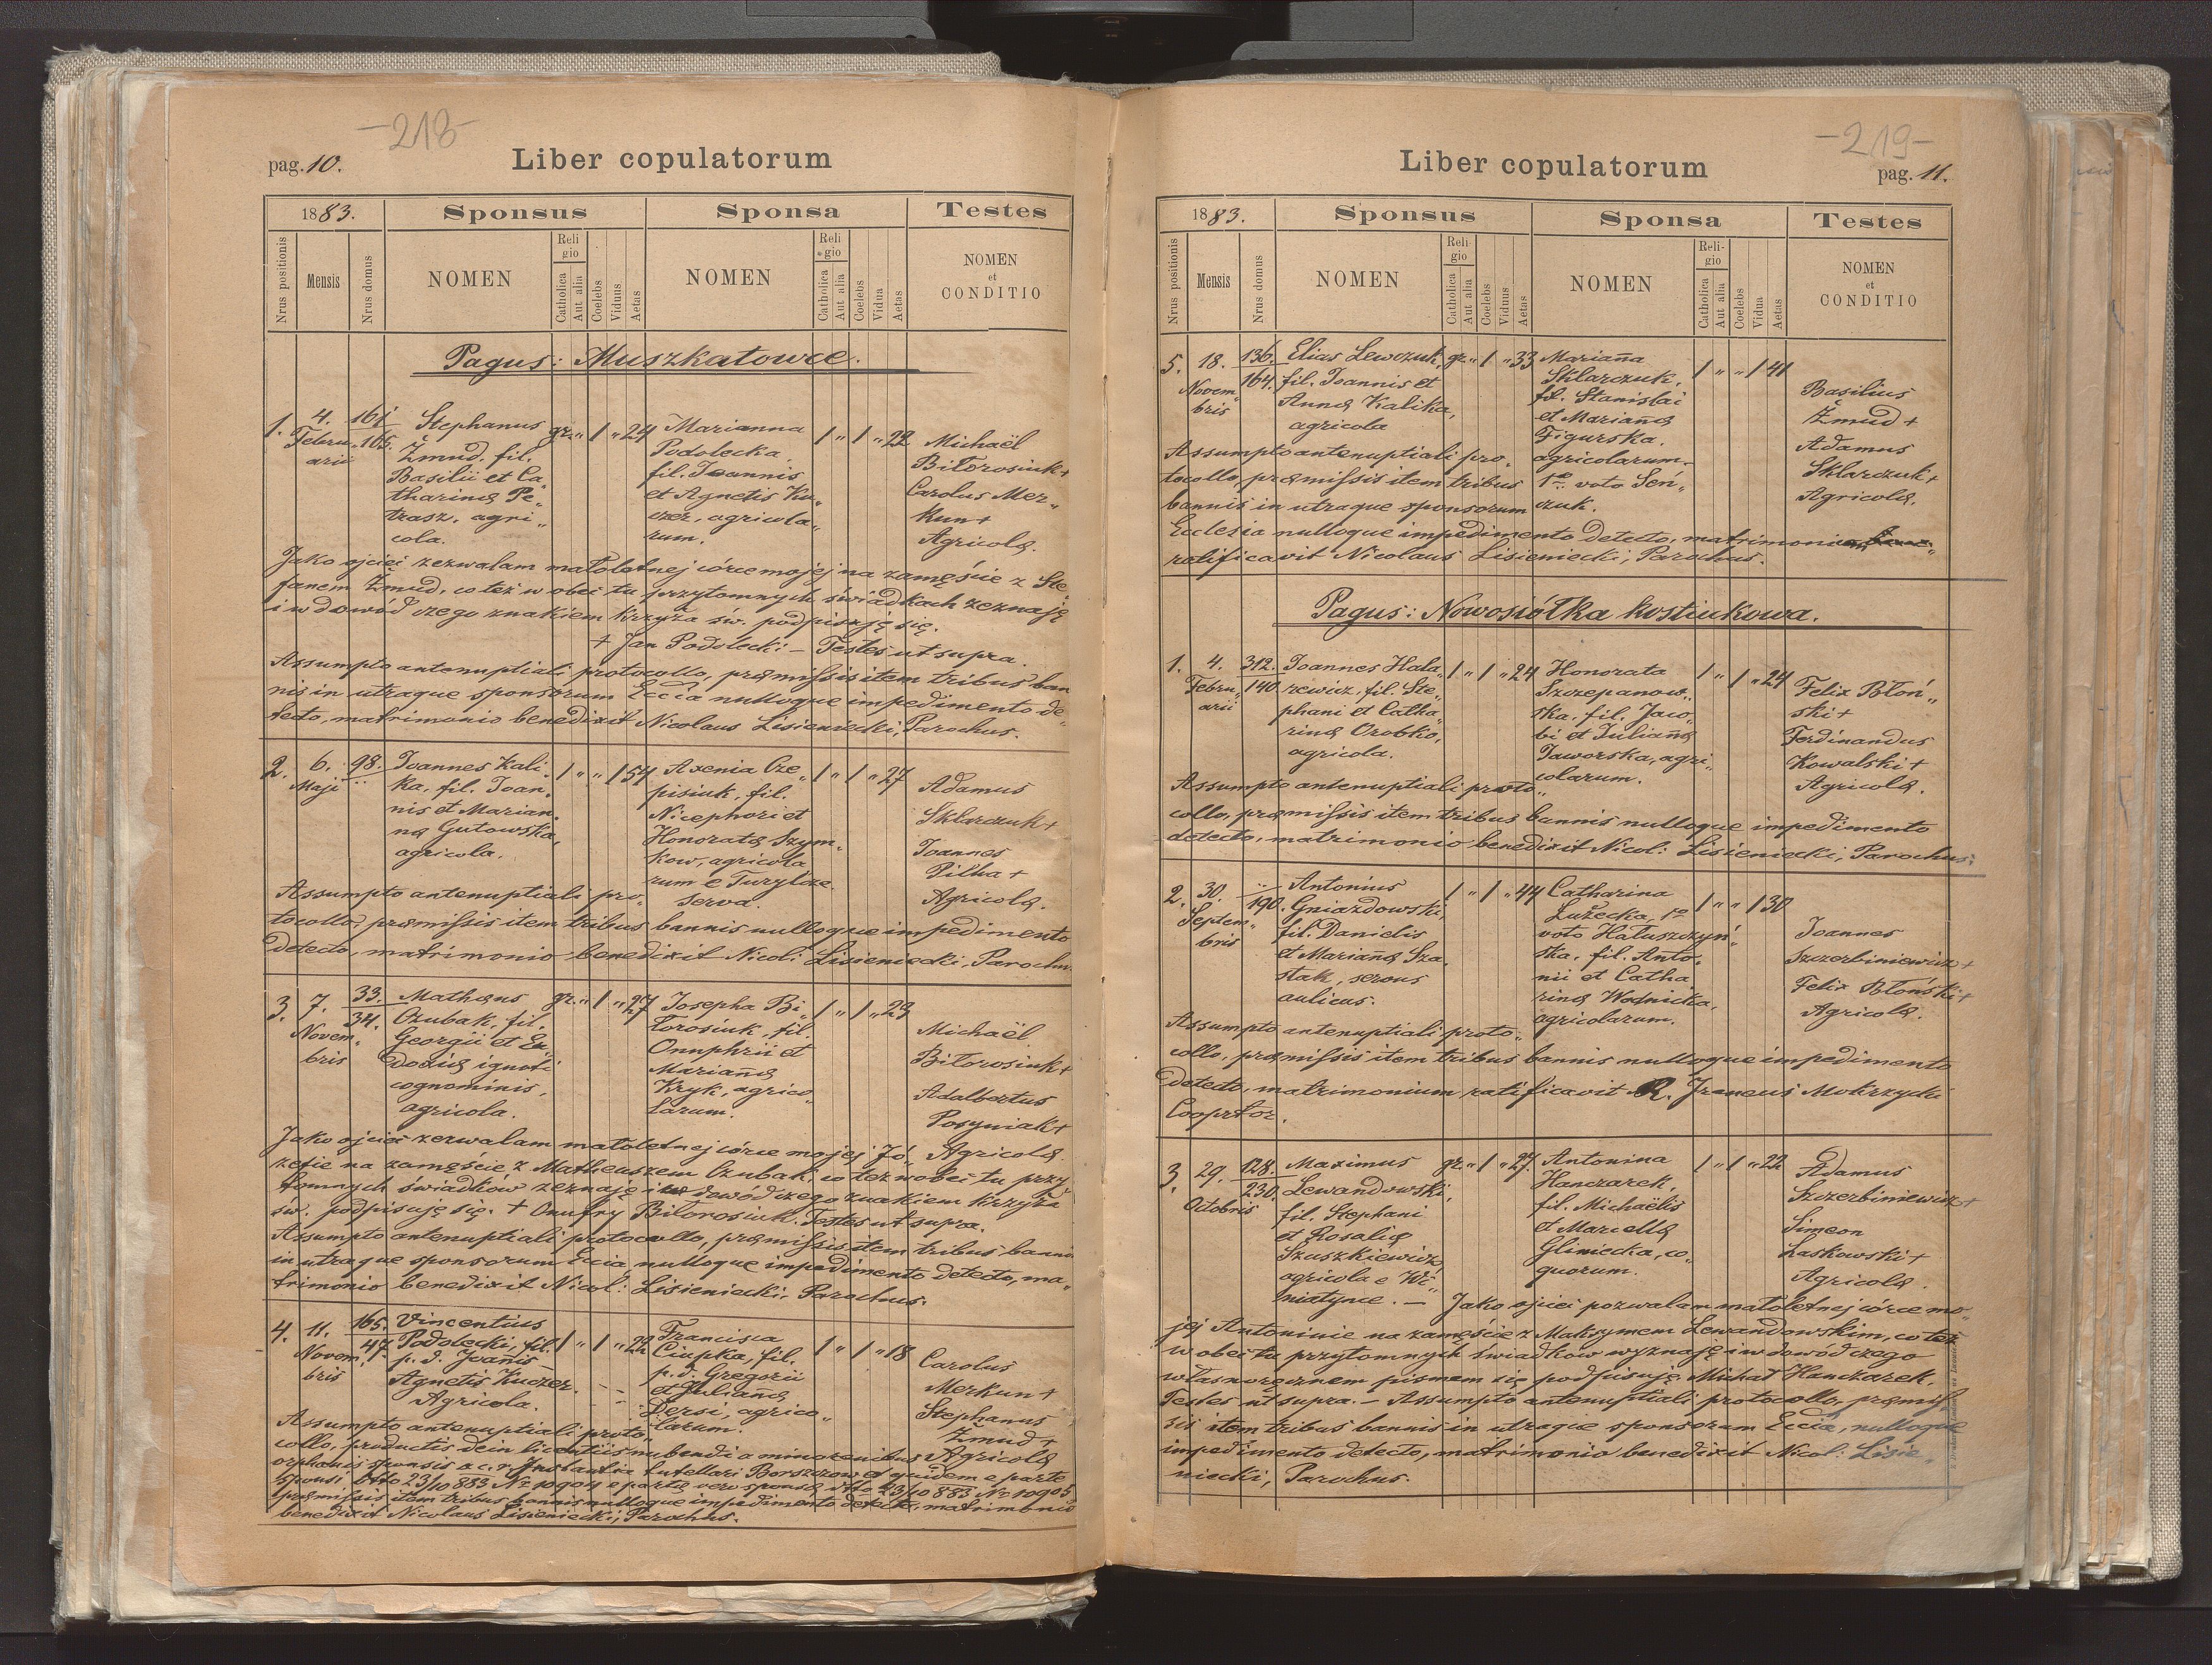 -218-
pag. 10.
Liber copulatorum
1883.
Sponsus
Sponsa
Testes
Nrus positionis
Mensis
Nrus domus
NOMEN
Religio
Catholica
Aut alia
Coelebs
Viduus
Aetas
NOMEN
Religio
Catholica
Aut alia
Coelebs
Vidua
Aetas
NOMEN
et
CONDITIO
Pagus: Muszkatowce.
1.
4.
Febru„
arii
161
165.
Stephanus
Żmud, fil.
Basilii et Ca„
tharinæ Pe„
trasz, agri„
cola.
gr. „ 1 „ 24
Marianna
Podolecka,
fil. Joannis
et Agnetis Ku„
czer, agricola„
rum.
1 „ 1 „ 22
Michaël
Biłorosiuk+
Carolus Mer„
kun+
Agricolæ.
Jako ojciec zezwalam małoletnej córce mojej na zamęście z Ste„
fanem Żmud, co też w obec tu przytomnych świadkach zeznaję
i w dowód czego znakiem krzyża św. podpisuję się.
+ Jan Podolecki – Testes ut supra.
Assumpto antenuptiali protocollo, præmissis item tribus ban
nis in utraque sponsorum Eccia nulloque impedimento de„
tecto, matrimonio benedixit Nicolaus Lisieniecki, Parochus.
2.
6.
Maji
98.
„
Joannes Kali„
ka, fil. Joan„
nis et Marian„
næ Gutowska,
agricola.
1 „ „ 1 54
Axenia Cze„
pisiuk, fil.
Nicephori et
Honoratæ Szym„
kow, agricola
rum e Turylcze
serva.
1 „ 1 „ 27
Adamus
Sklarczuk+
Joannes
Pilha+
Agricolæ.
Assumpto antenuptiali pro„
tocollo, præmissis item tribus bannis nulloque impedimento
detecto, matrimonio benedixit Nicol: Lisieniecki, Parochus
3.
7.
Novem„
bris
33.
34.
Mathæus
Czubak, fil.
Georgii et Eu„
doxiæ ignoti
cognominis,
agricola.
gr. „ 1 „ 27
Josepha Bi„
łorosiuk, fil.
Onuphrii et
Mariañæ
Kryk, agrico„
larum.
1 „ 1 „ 23
Michaël
Biłorosiuk+
Adalbertus
Posyniak+
Agricolæ.
Jako ojciec zezwalam małoletnej córce mojej Jó„
zefie na zamęście z Matheuszem Czubak, co też w obec tu przy
tomnych świadków zeznaję i w dowód czego znakiem krzyża
św. podpisuję się. + Onufry Biłorosiuk. Testes ut supra.
Assumpto antenuptiali protocollo, præmissis item tribus bannis
in utraque sponsorum Eccia nulloque impedimento detecto, ma„
trimonio benedixit Nicol: Lisieniecki, Parochus.
4.
11.
Novem„
bris
165.
47.
Vincentius
Podolecki, fil.
p. d. Joanis
Agnetis Kuczer.
Agricola.
1 „ 1 „ 22
Francisca
Ciupka, fil.
p. d. Gregorii
et Julianæ
Dersi, agrico„
larum.
1 „ 1 „ 18
Carolus
Merkun+
Stephanus
Żmud+
Agricolæ
Assumpto antenuptiali proto„
collo, productis dein licentiis nubendi a minorenibus
orphanis sponsis a c. r. Instantia tutellari Borszczow et quidem e parte
sponsi dtto 23/10 883 No 10904 e parte vero sponsæ dtto 23/10 883 No 10905
præmissis item tribus bannis nulloque impedimento detecto, matrimonio
benedixit Nicolaus Lisieniecki, Parochus.
-219-
Liber copulatorum
pag. 11.
1883.
Sponsus
Sponsa
Testes
Nrus positionis
Mensis
Nrus domus
NOMEN
Religio
Catholica
Aut alia
Coelebs
Viduus
Aetas
NOMEN
Religio
Catholica
Aut alia
Coelebs
Vidua
Aetas
NOMEN
et
CONDITIO
5.
18.
Novem„
bris
136.
164.
Elias Lewczuk,
fil. Joannis et
Annæ Kalika,
agricola
gr. „ 1 „ 33
Mariaña
Sklarczuk,
fil. Stanislai
et Mariañæ
Figurska,
agricolarum.
1o voto Sen„
czuk.
1 „ „ 1 41
Basilius
Żmud+
Adamus
Sklarczuk+
Agricolæ.
Assumpto antenuptiali pro„
tocollo, præmissis item tribus
bannis in utraque sponsorum
Ecclesia nulloque impedimento detecto, matrimonium
ratificavit Nicolaus Lisieniecki, Parochus.
Pagus: Nowosiółka kostiukowa.
1.
4.
Febru„
arii
312.
140.
Joannes Hala„
rewicz, fil. Ste„
phani et Catha„
rinæ Orobko,
agricola.
1 „ 1 „ 24
Honorata
Szczepanow„
ska, fil. Jaco„
bi et Julianæ
Jaworska, agri„
colarum.
1 „ 1 „ 24
Felix Błoń„
ski+
Ferdinandus
Kowalski+
Agricolæ.
Assumpto antenuptiali proto„
collo, præmissis item tribus bannis nulloque impedimento
detecto, matrimonio benedixit Nicol: Lisieniecki, Parochus.
2.
30.
Septem„
bris
„
190.
Antonius
Gniazdowski,
fil. Danielis
et Mariañæ Sza„
stak, servus
aulicus.
1 „ 1 „ 44
Catharina
Łużecka, 1o
voto Hałuszczyń„
ska, fil. Anto„
nii et Catha
rinæ Wodnicka,
agricolarum.
1 „ „ 1 30
Joannes
Szczerbiniewicz+
Felix Błoński+
Agricolæ.
Assumpto antenuptiali proto„
collo, præmissis item tribus bannis nulloque impedimento
detecto, matrimonium ratificavit R. Ireneus Mokrzycki
Cooprtor.
3.
29.
Octobris
128.
230.
Maximus
Lewandowski,
fil. Stephani
et Rosaliæ
Szuszkiewicz,
agricola e Wi„
niatynce. –
gr. „ 1 „ 27.
Antonina
Hanczarek,
fil. Michaëlis
et Marcellæ
Gliniecka, co„
quorum.
1 „ 1 „ 22
Adamus
Szczerbiniewicz+
Simeon
Laskowski+
Agricolæ.
Jako ojciec pozwalam małoletnej córce mo„
jej Antoninie na zamęście z Maksymem Lewandowskim, co też
w obec tu przytomnych świadków wyznaję i w dowód czego
własnoręcznem pismem się podpisuję. Michał Hanczarek.
Testes ut supra. – Assumpto antenuptiali protocollo, præmis„
sis item tribus bannis in utraque sponsorum Eccia, nulloque
impedimento detecto, matrimonio benedixit Nicol: Lisie„
niecki, Parochus.